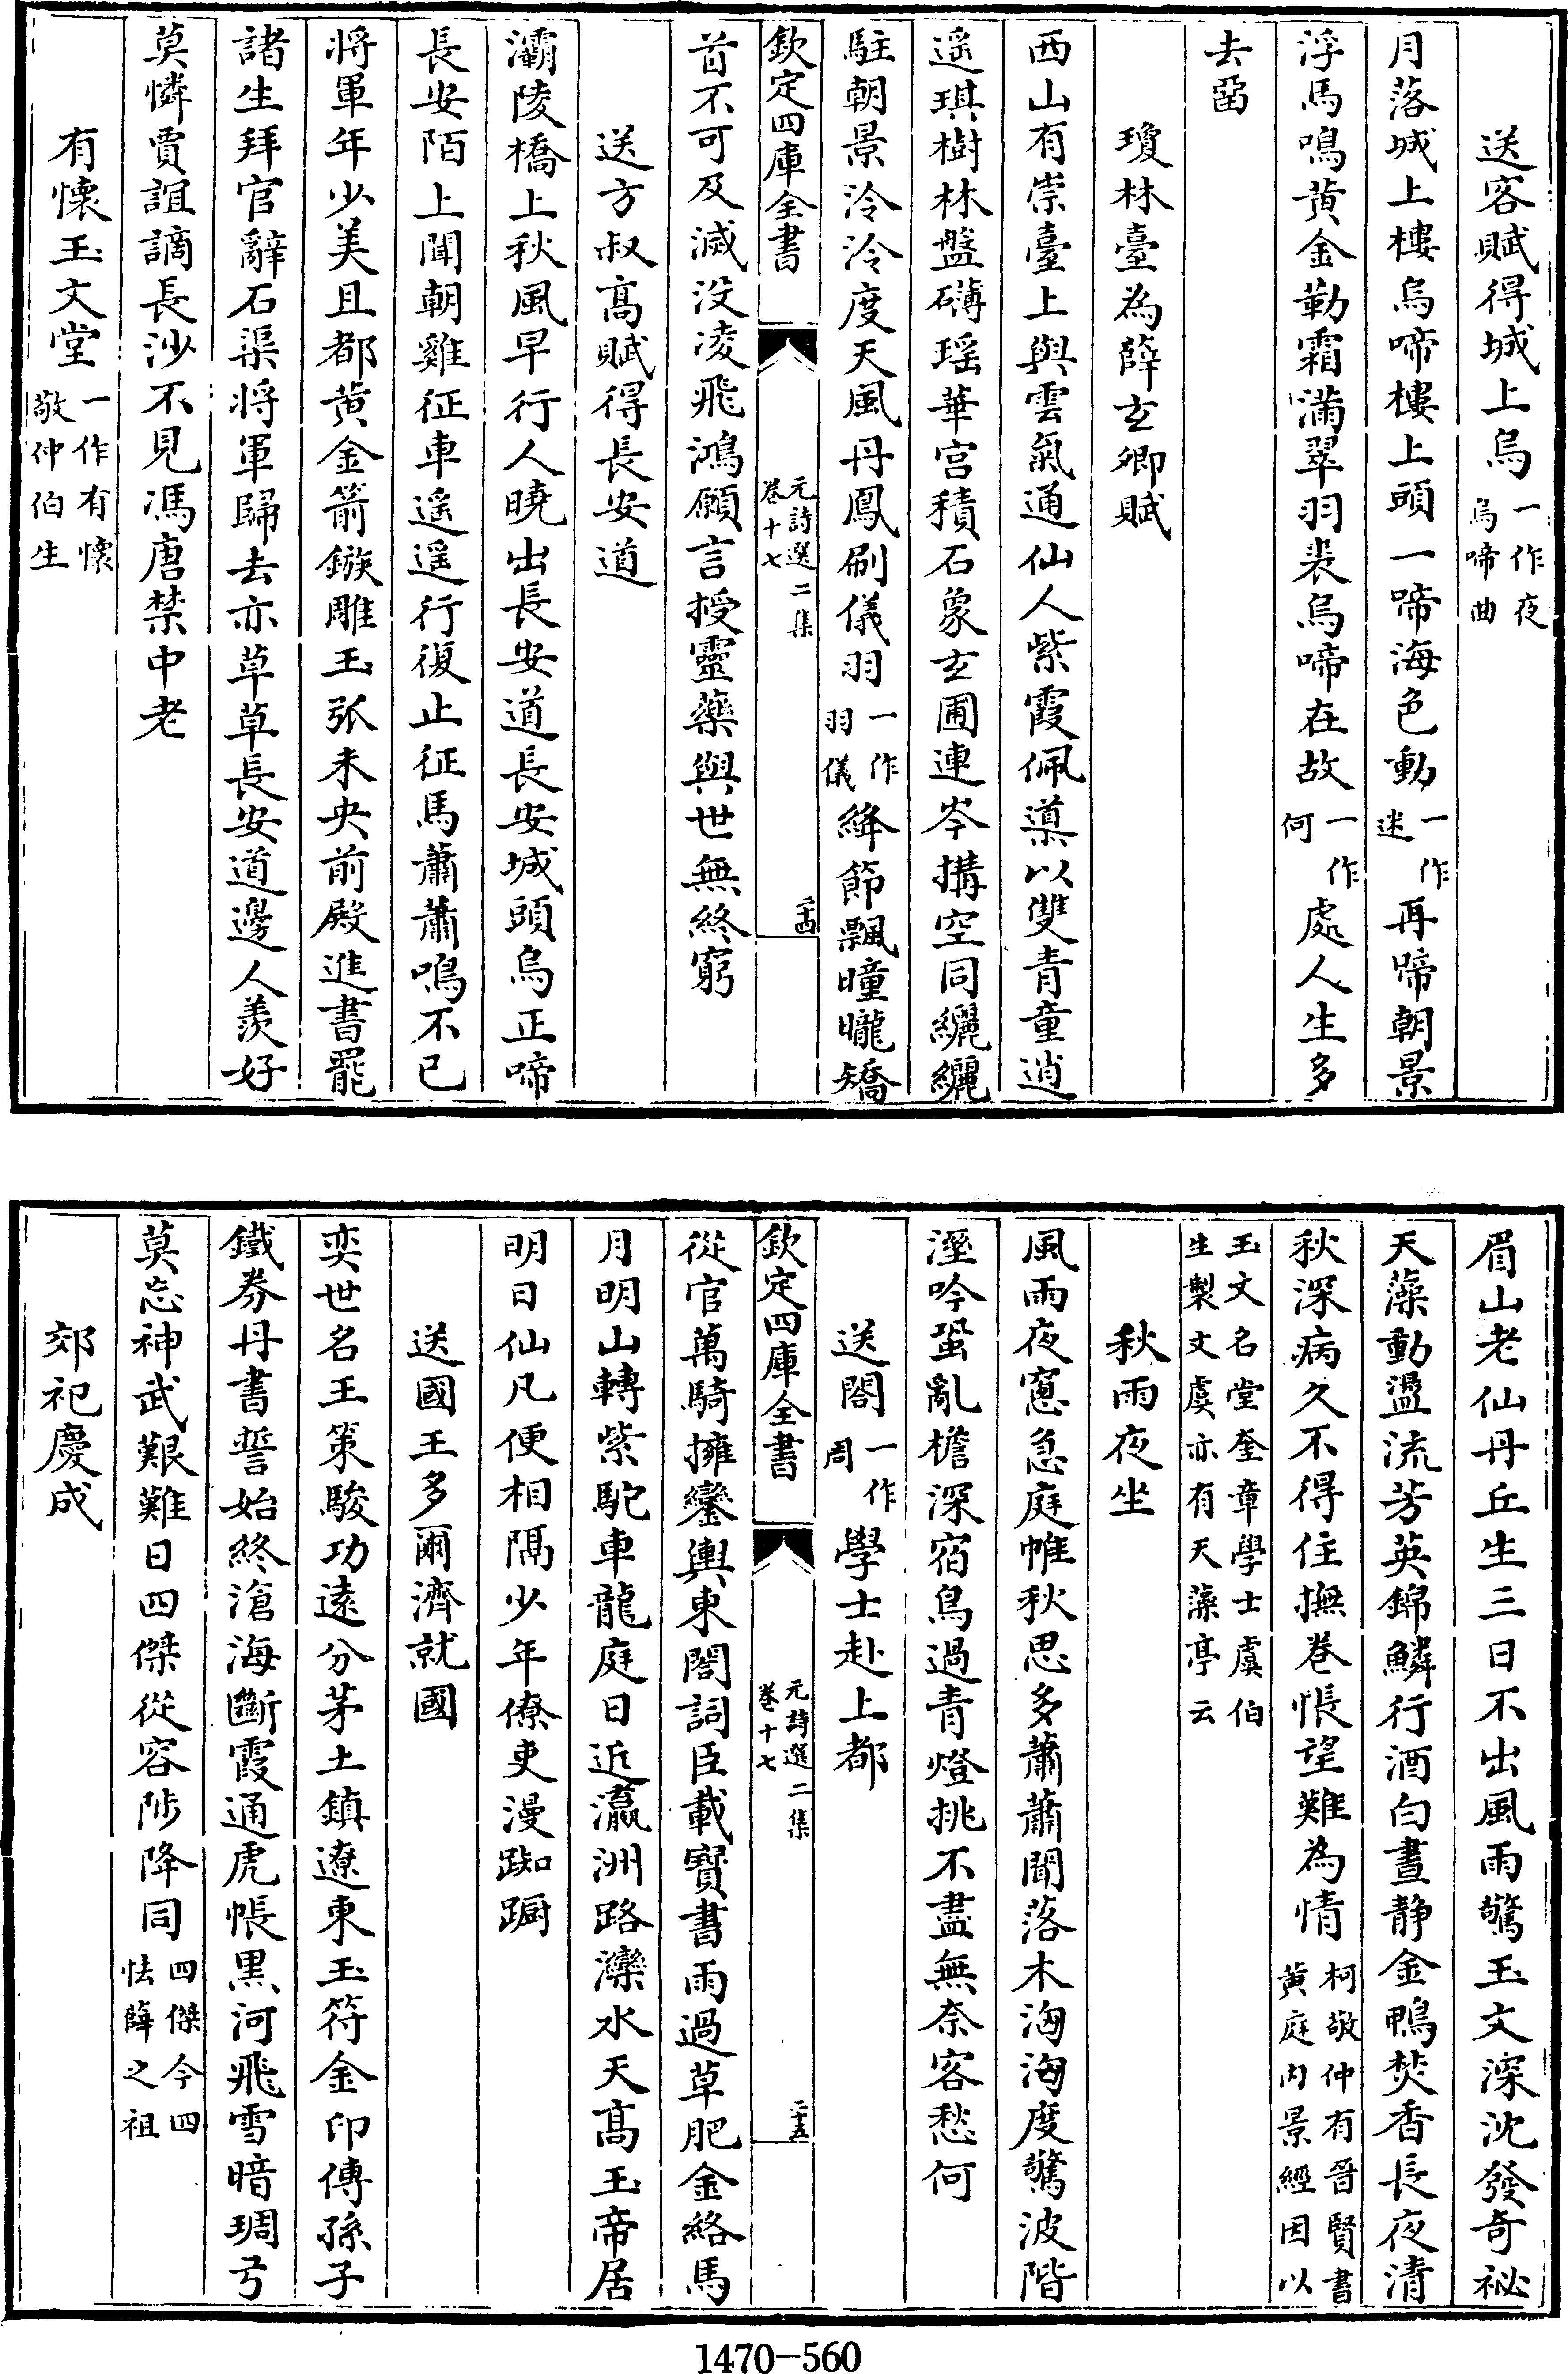 送客賦得城上烏一作夜烏啼曲
月落城上樓烏啼樓上頭一啼海色動一作迷再啼朝景
浮馬鳴黄金勒霜滿翠羽裘烏啼在故一作何處人生多
去畱
瓊林臺為薛玄卿賦
西山有崇臺上與雲氣通仙人紫霞佩導以雙青童逍
遥琪樹林盤礴瑶華宫積石象玄圃連岑搆空同纚纚
駐朝景泠泠度天風丹鳳刷儀羽一作羽儀絳節飄曈曨矯
欽定四庫全書
元詩選二集
卷十七
二十四
首不可及滅没凌飛鴻願言授靈藥與世無終窮
送方叔髙賦得長安道
灞陵橋上秋風早行人曉出長安道長安城頭烏正啼
長安陌上聞朝雞征車遥遥行復止征馬蕭蕭鳴不已
将軍年少美且都黄金箭鏃雕玉弧未央前殿進書罷
諸生拜官辭石渠将軍歸去亦草草長安道邊人羨好
莫憐賈誼謫長沙不見馮唐禁中老
有懷玉文堂一作有懷敬仲伯生
眉山老仙丹丘生三日不出風雨驚玉文深沈發奇祕
天藻動盪流芳英錦鱗行酒白晝静金鴨焚香長夜清
秋深病久不得往撫卷悵望難為情柯敬仲有晉賢書黄庭内景經因以
玉文名堂奎章學士虞伯生製文虞亦有天藻亭云
秋雨夜坐
風雨夜窻急庭帷秋思多蕭蕭聞落木洶洶度驚波階
溼吟蛩亂檐深宿鳥過青燈挑不盡無奈客愁何
送閣一作周學士赴上都
欽定四庫全書
元詩選二集
卷十七
二十五
從官萬騎擁鑾輿東閣詞臣載寳書雨過草肥金絡馬
月明山轉紫駝車龍庭日近瀛洲路灤水天髙玉帝居
明日仙凡便相隔少年僚吏漫踟蹰
送國王多爾濟就國
奕世名王策駿功逺分茅土鎮遼東玉符金印傳孫子
鐵券丹書誓始終滄海斷霞通虎帳黒河飛雪暗琱弓
莫忘神武艱難日四傑從容陟降同四傑今四怯薛之祖
郊祀慶成
1470-560